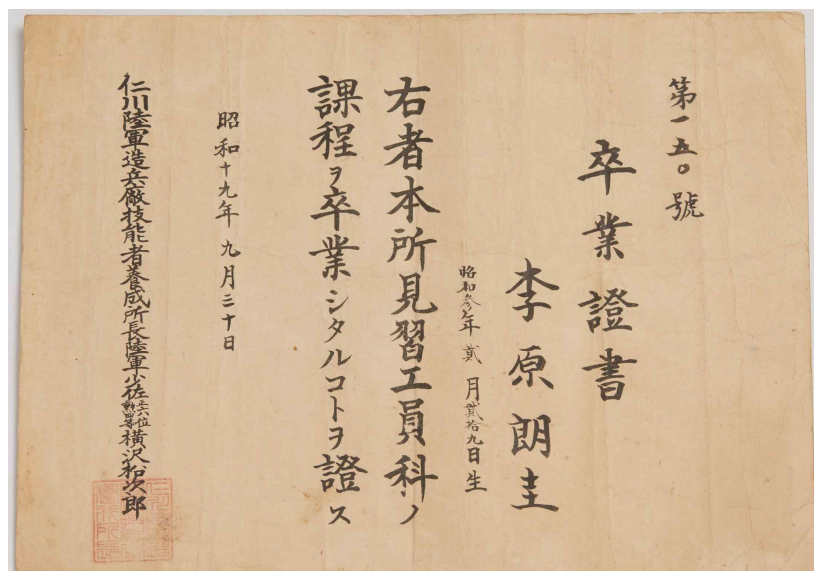 第一五〇號
卒業證書
李原朗圭
昭和參年貳月貳拾九日生
右者本所見習工員科ノ
課程ヲ卒業シタルコトヲ證ス
昭和十九年九月三十日
仁川陸軍造兵廠技能者養成所長陸軍少佐正六位勲四等横沢松次郎